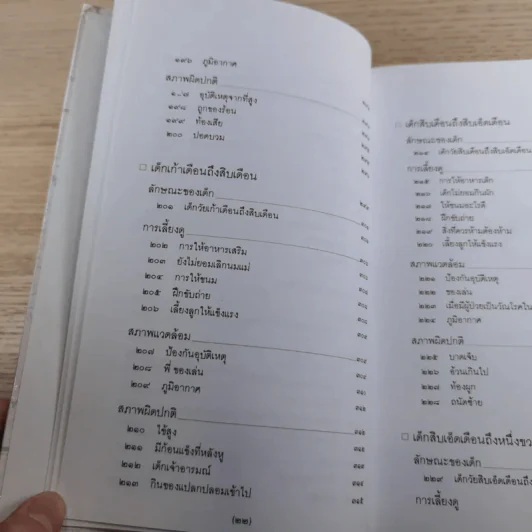 ๑๙๖ ภูมิอากาศ
สภาพผิดปกติ
อุบัติเหตุจากที่สูง
๑๙๘ ถูกของร้อน
๑๙๙ ท้องเสีย
๒๐๐ ปอดบวม
□ เด็กเก้าเดือนถึงสิบเดือน
ลักษณะของเด็ก
๒๐๑ เด็กวัยเก้าเดือนถึงสิบเดือน
การเลี้ยงดู
๒๐๒ การให้อาหารเสริม
๒๐๓ ยังไม่ยอมเลิกนมแม่
๒๐๔ การให้ขนม
๒๐๕ ฝึกขับถ่าย
๒๐๖ เลี้ยงลูกให้แข็งแรง
สภาพแวดล้อม
๒๐๗ ป้องกันอุบัติเหตุ
๒๐๘ พี่ ของเล่น
๒๐๙ ภูมิอากาศ
สภาพผิดปกติ
๒๑๐ ไข้สูง
๒๑๑ มีก้อนแข็งที่หลังหู
๒๑๒ เด็กเจ้าอารมณ์
๒๑๓ กินของแปลกปลอมเข้าไป
(๒๒)
□ เด็กสิบเดือนถึงสิบเอ็ดเดือน
ลักษณะของเด็ก
๒๑๔ เด็กวัยสิบเดือนถึงสิบเอ็ดเดือน
การเลี้ยงดู
๒๑๕ การให้อาหารเด็ก
๒๑๖ เด็กไม่ยอมกินผัก
๒๑๗ ให้ขนมอะไรดี
๒๑๘ ฝึกขับถ่าย
๒๑๙ สิ่งที่ควรห้ามต้องห้าม
๒๒๐ เลี้ยงลูกให้แข็งแรง
สภาพแวดล้อม
๒๒๑ ป้องกันอุบัติเหตุ
๒๒๒ ของเล่น
๒๒๓ เมื่อมีผู้ป่วยเป็นวัณโรคใน
๒๒๔ ภูมิอากาศ
สภาพผิดปกติ
๒๒๕ บาดเจ็บ
๒๒๖ อ้วนเกินไป
๒๒๗ ท้องผูก
๒๒๘ ถนัดซ้าย
□ เด็กสิบเอ็ดเดือนถึงหนึ่งขว
ลักษณะของเด็ก
๒๒๙ เด็กวัยสิบเอ็ดเดือนถึง
การเลี้ยงดู